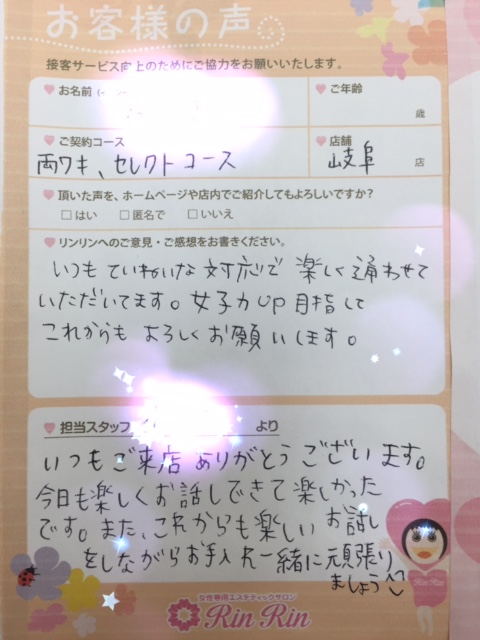 お客様の声
接客サービス向上のためにご協力をお願いいたします。
お名前
ご年齢
歳
ご契約コース
両ワキ、セレクトコース
店舗
岐阜 店
頂いた声を、ホームページや店内でご紹介してもよろしいですか?
□ はい □ 匿名で □ いいえ
リンリンへのご意見・ご感想をお書きください。
いつもていねいな対応で楽しく通わせて
いただいてます。女子力UP目指して
これからもよろしくお願いします。
担当スタッフ より
いつもご来店ありがとうございます。
今日も楽しくお話しできて楽しかった
です。また、これからも楽しいお話し
をしながらお手入れ一緒に頑張り
ましょう^^
RinRin
女性専用エステティックサロン
Rin Rin